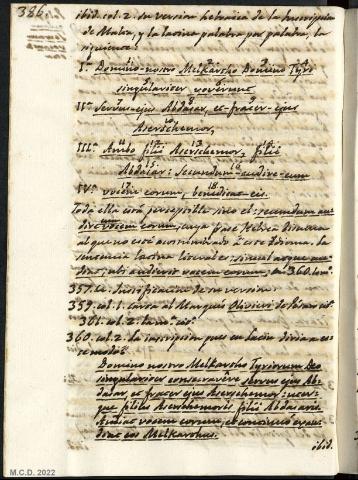 386.
ibid. col. 2. su version hebraica de la Inscripcion
de Malta, y la latina palabra por palabra, la
siguiente:
I.ª Domino-nostro Melkartho Domino Tyri
singulariter voverunt
II.ª Servus-ejus Abdasar, et-frater-ejus
Aserschemor,
III.ª Ambo filii Aserschemor, filii
Abdasar: Secundum-audire-eum
IV.ª vocem eorum, benedicat-eis.
Toda ella está perceptible sino el: secundum au-
dire vocem eorum; cuya frase
al que no esté acostumbrado a este Idioma. la
sentencia latina literal es: simul atque au-
diat, ubi audierit vocem eorum,
357. Justificacion de su version.
359. col. 1. carta al Marqués Olivieri
361. col. 2.
360. col. 2. la inscripcion pues en latin diria a es-
te modo:
Domino nostro Melkartho Tyriorum Deo
singulariter consecravere servus ejus Ab-
dasar et frater ejus Aserschemor: uter-
que filius Aserschemoris filii Abdasaris.
Audiat vocem eorum, et
eos Melkarthus.
ibid.
M.C.D. 2022